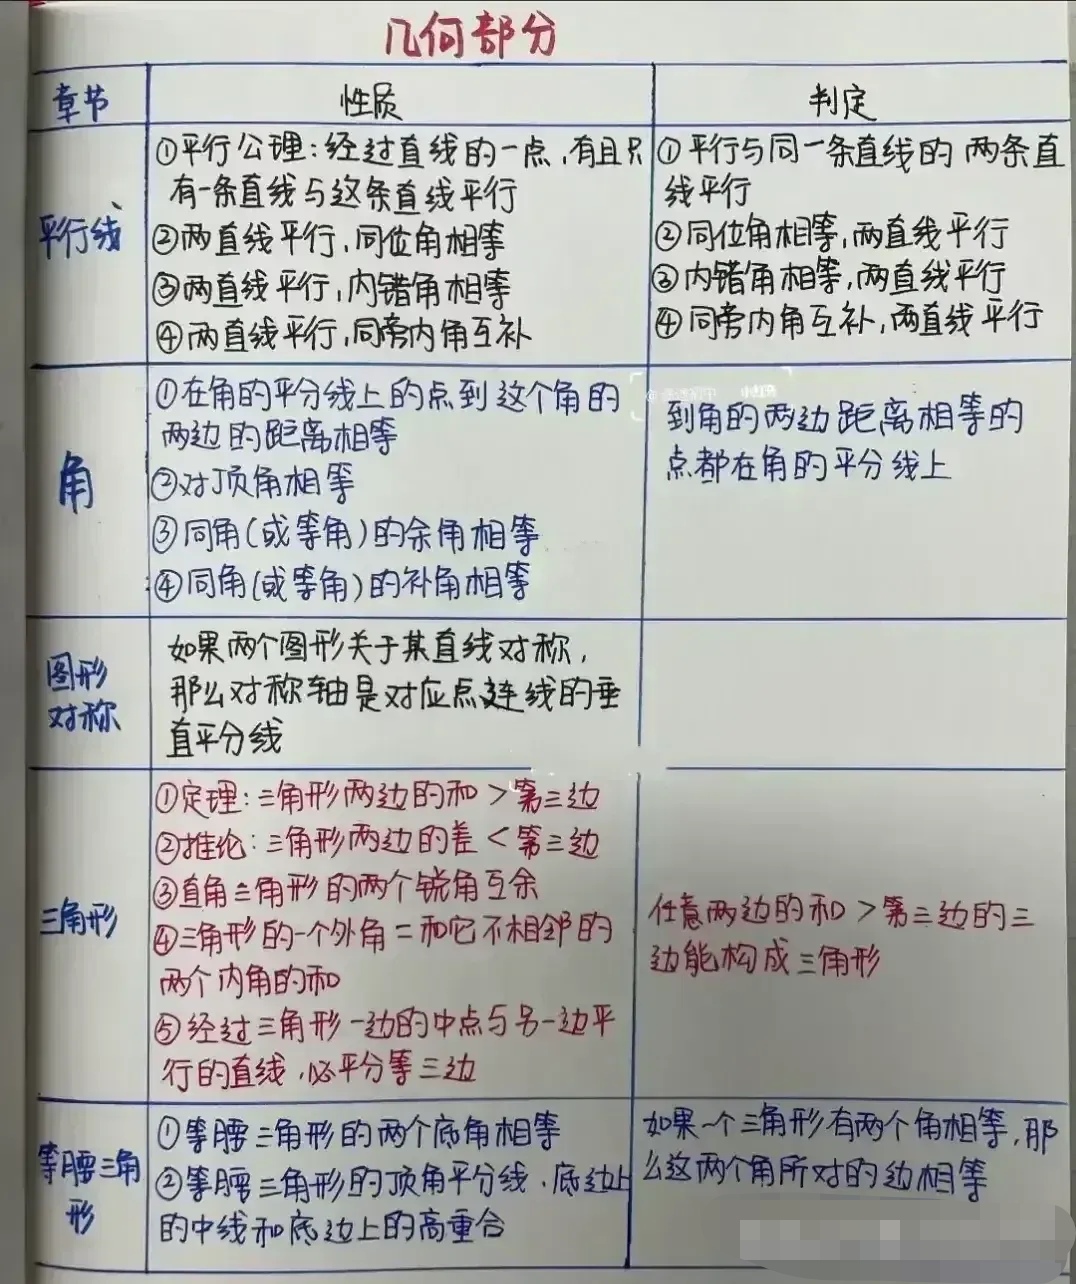 几何部分
章节
性质
判定
平行线
①平行公理:经过直线的一点,有且只
有一条直线与这条直线平行
②两直线平行,同位角相等
③两直线平行,内错角相等
④两直线平行,同旁内角互补
①平行与同一条直线的两条直
线平行
②同位角相等,两直线平行
③内错角相等,两直线平行
④同旁内角互补,两直线平行
角
①在角的平分线上的点到这个角的
两边的距离相等
②对顶角相等
③同角(或等角)的余角相等
④同角(或等角)的补角相等
到角的两边距离相等的
点都在角的平分线上
图形
对称
如果两个图形关于某直线对称,
那么对称轴是对应点连线的垂
直平分线
三角形
①定理:三角形两边的和>第三边
②推论:三角形两边的差<第三边
③直角三角形的两个锐角互余
④三角形的一个外角=和它不相邻的
两个内角的和
⑤经过三角形一边的中点与另一边平
行的直线,必平分等三边
任意两边的和>第三边的三
边能构成三角形
等腰三角
形
①等腰三角形的两个底角相等
②等腰三角形的顶角平分线.底边上
的中线和底边上的高重合
如果一个三角形有两个角相等,那
么这两个角所对的边相等